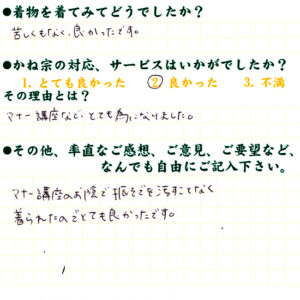 ●着物を着てみてどうでしたか?
苦しくもなく、良かったです。
●かね宗の対応、サービスはいかがでしたか?
1. とても良かった 2. 良かった 3. 不満
その理由とは?
マナー講座など、とても為になりました。
●その他、率直なご感想、ご意見、ご要望など、
なんでも自由にご記入下さい。
マナー講座のお陰で振そでを汚すことなく
着られたのでとても良かったです。